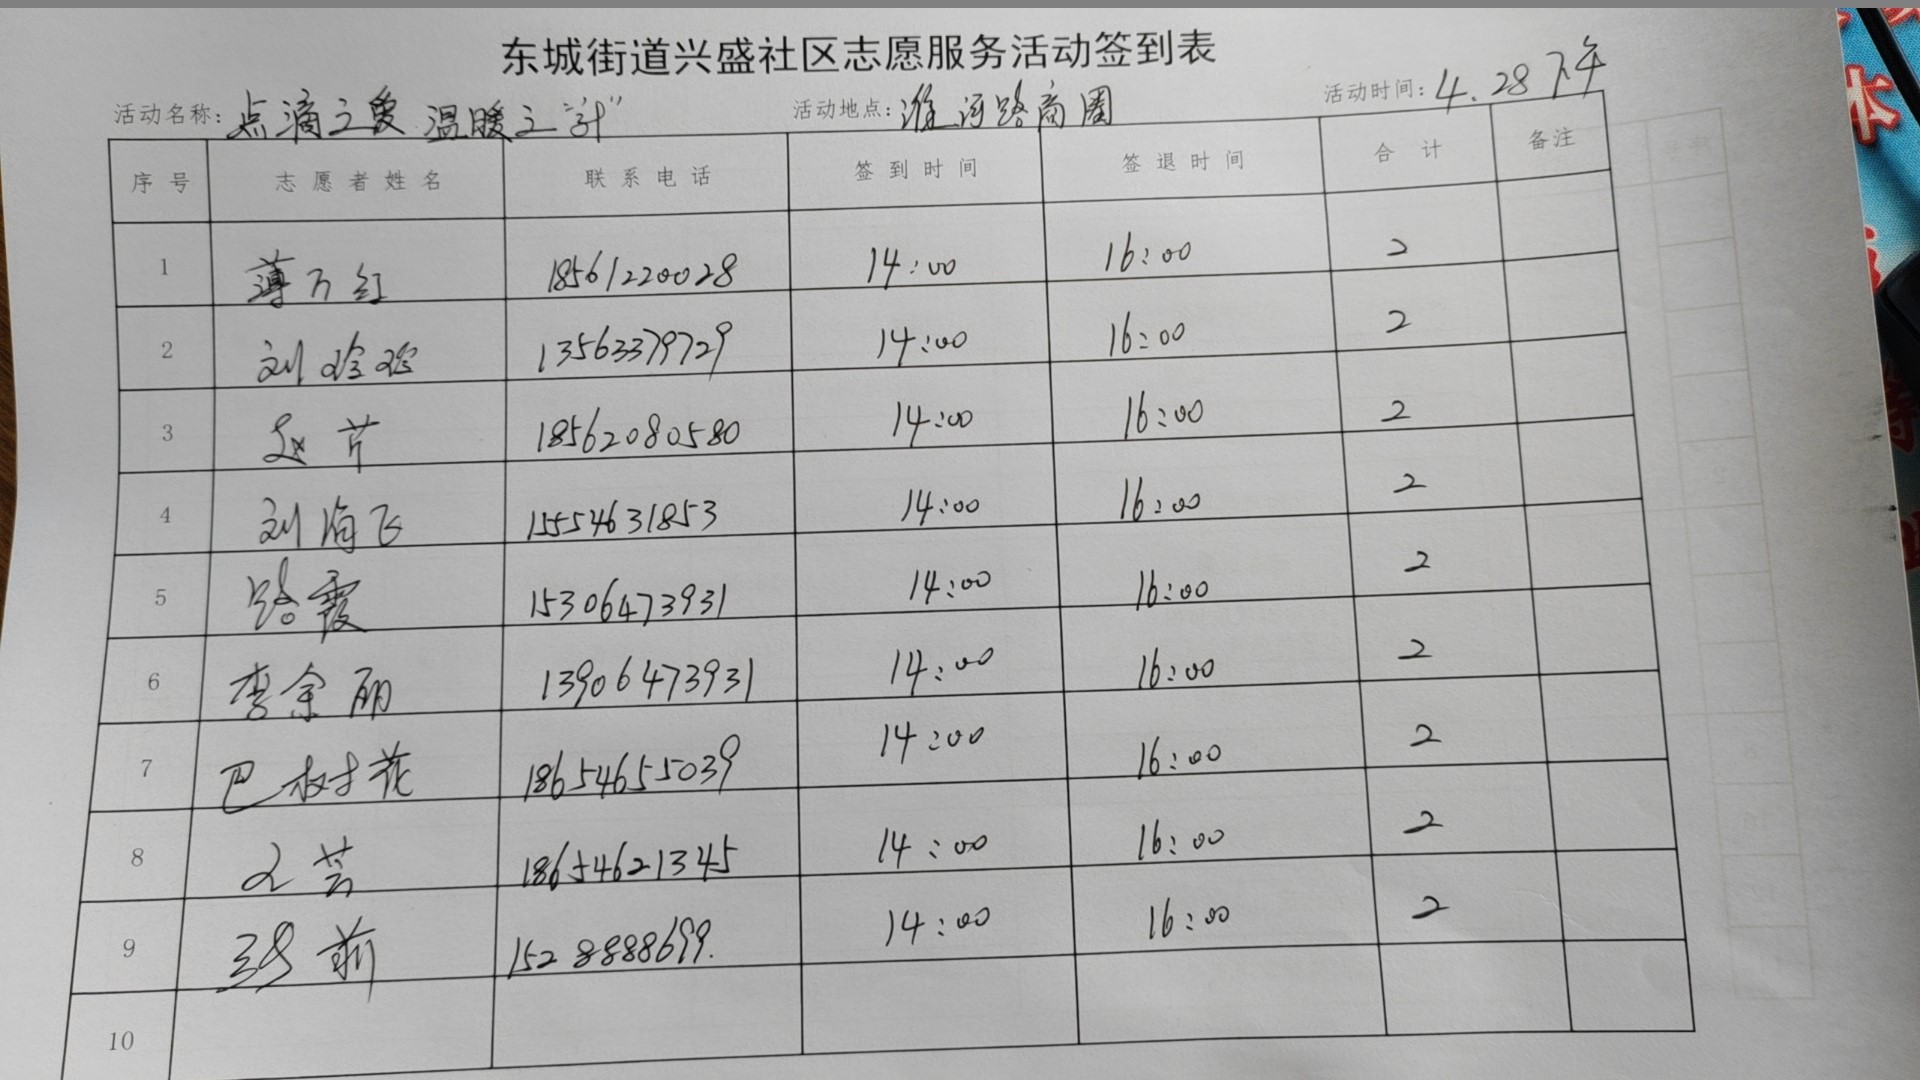 东城街道兴盛社区志愿服务活动签到表
活动名称：点滴之爱 温暖之"计" 活动地点：淮河路商圈 活动时间：4.28下午
序号 志愿者姓名 联系电话 签到时间 签退时间 合计 备注
1 薄万红 18561220028 14:00 16:00 2
2 刘珍珍 13563379729 14:00 16:00 2
3 赵芹 18562080580 14:00 16:00 2
4 刘海飞 15554631853 14:00 16:00 2
5 路霞 15306473931 14:00 16:00 2
6 李余丽 13906473931 14:00 16:00 2
7 巴树花 18654655039 14:00 16:00 2
8 芸 18654621345 14:00 16:00 2
9 15288888699. 14:00 16:00 2
10